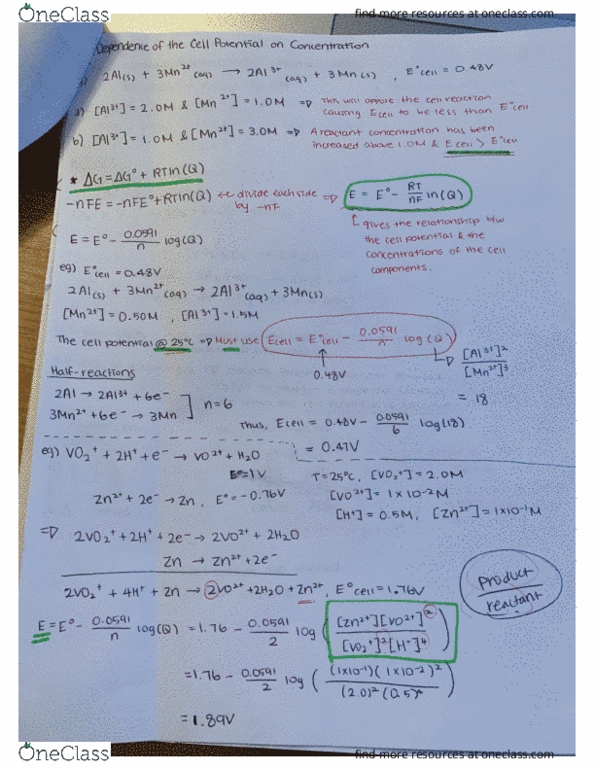 OneClass
find more resources at oneclass.com
Dependence of the Cell Potential on Concentration
2Al(s) + 3Mn²⁺(aq) → 2Al³⁺(aq) + 3Mn(s) , E°cell = 0.48V
a) [Al³⁺] = 2.0M & [Mn²⁺] = 1.0M ⇒ This will oppose the cell reaction
causing Ecell to be less than E°cell
b) [Al³⁺] = 1.0M & [Mn²⁺] = 3.0M ⇒ A reactant concentration has been
increased above 1.0M & Ecell > E°cell
* ΔG = ΔG° + RTln(Q)
-nFE = -nFE° + RTln(Q) ← divide each side by -nF ⇒ E = E° - RT/nF ln(Q)
gives the relationship b/w
the cell potential & the
concentrations of the cell
components.
E = E° - 0.0591/n log(Q)
eg) E°cell = 0.48V
2Al(s) + 3Mn²⁺(aq) → 2Al³⁺(aq) + 3Mn(s)
[Mn²⁺] = 0.50M , [Al³⁺] = 1.5M
The cell potential @ 25°C ⇒ Must use Ecell = E°cell - 0.0591/n log(Q)
0.48V
[Al³⁺]²/[Mn²⁺]³
= 18
Half-reactions
2Al → 2Al³⁺ + 6e⁻
3Mn²⁺ + 6e⁻ → 3Mn
n=6
Thus, Ecell = 0.48V - 0.0591/6 log(18)
= 0.47V
eg) VO₂⁺ + 2H⁺ + e⁻ → VO²⁺ + H₂O
E°=1V
Zn²⁺ + 2e⁻ → Zn, E° = -0.76V
T=25°C, [VO₂⁺] = 2.0M
[VO²⁺] = 1×10⁻²M
[H⁺] = 0.5M, [Zn²⁺] = 1×10⁻¹M
⇒ 2VO₂⁺ + 2H⁺ + 2e⁻ → 2VO²⁺ + 2H₂O
Zn → Zn²⁺ + 2e⁻
2VO₂⁺ + 4H⁺ + Zn → 2VO²⁺ + 2H₂O + Zn²⁺, E°cell = 1.76V
product/reactant
E = E° - 0.0591/n log(Q) = 1.76 - 0.0591/2 log([Zn²⁺][VO²⁺]²/[VO₂⁺]²[H⁺]⁴)
= 1.76 - 0.0591/2 log((1×10⁻¹)(1×10⁻²)²/(2.0)²(0.5)⁴)
= 1.89V
OneClass
find more resources at oneclass.com